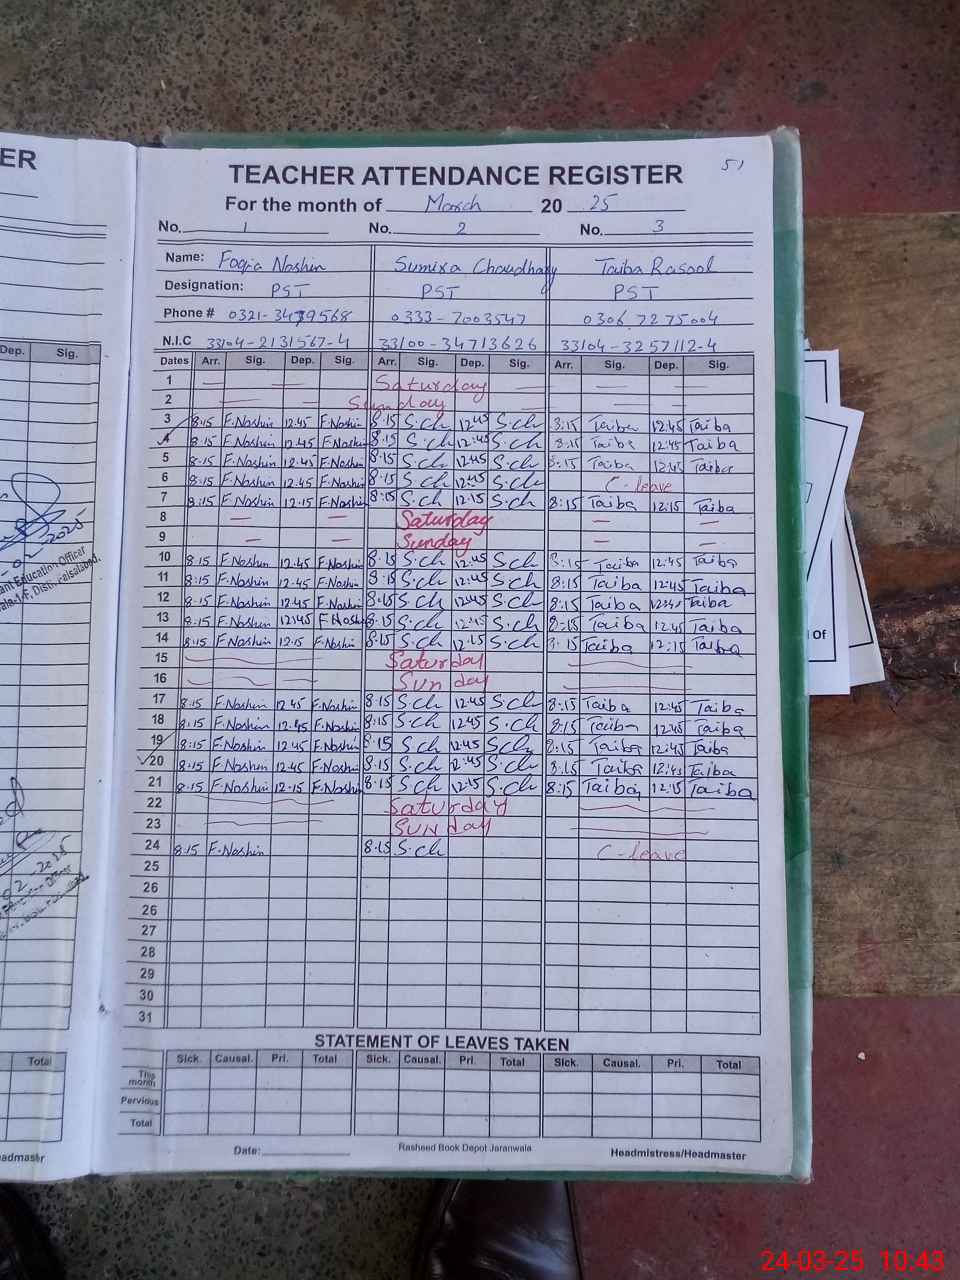 ER
TEACHER ATTENDANCE REGISTER 51
For the month of March 20 25
No. 1 No. 2 No. 3
Name: Foqia Noshin Sumixa Choudhary Taiba Rasool
Designation: PST PST PST
Phone # 0321-3479568 0333-7003547 0306 7275004
N.I.C 33104-2131567-4 33100-34713626 33104-3257112-4
Dep. Sig.
Dates Arr. Sig. Dep. Sig. Arr. Sig. Dep. Sig. Arr. Sig. Dep. Sig.
1 Saturday
2 Sunday
3 8:15 F.Noshin 12.45 F.Noshin 8:15 S.ch 12:45 S.ch 8:15 Taiba 12:45 Taiba
4 8:15 F.Noshin 12.45 F.Noshin 8:15 S.ch 12:45 S.ch 8:15 Taiba 12:45 Taiba
5 8:15 F.Noshin 12.45 F.Noshin 8:15 S.ch 12:45 S.ch 8:15 Taiba 12:45 Taiba
6 8:15 F.Noshin 12.45 F.Noshin 8:15 S.ch 12:45 S.ch C-leave
7 8:15 F.Noshin 12.15 F.Noshin 8:15 S.ch 12:15 S.ch 8:15 Taiba 12:15 Taiba
8 Saturday
9 Sunday
10 8:15 F.Noshin 12.45 F.Noshin 8:15 S.ch 12:45 S.ch 8:15 Taiba 12:45 Taiba
11 8:15 F.Noshin 12.45 F.Noshin 8:15 S.ch 12:45 S.ch 8:15 Taiba 12:45 Taiba
12 8:15 F.Noshin 12.45 F.Noshin 8:15 S.ch 12:45 S.ch 8:15 Taiba 12:45 Taiba
13 8:15 F.Noshin 12:45 F.Noshin 8:15 S.ch 12:45 S.ch 8:15 Taiba 12:45 Taiba
14 8:15 F.Noshin 12.15 F.Noshin 8:15 S.ch 12:15 S.ch 8:15 Taiba 12:15 Taiba
15 Saturday
16 Sunday
17 8:15 F.Noshin 12.45 F.Noshin 8:15 S.ch 12:45 S.ch 8:15 Taiba 12:45 Taiba
18 8:15 F.Noshin 12.45 F.Noshin 8:15 S.ch 12:45 S.ch 8:15 Taiba 12:45 Taiba
19 8:15 F.Noshin 12.45 F.Noshin 8:15 S.ch 12:45 S.ch 8:15 Taiba 12:45 Taiba
20 8:15 F.Noshin 12.45 F.Noshin 8:15 S.ch 12:45 S.ch 8:15 Taiba 12:45 Taiba
21 8:15 F.Noshin 12.15 F.Noshin 8:15 S.ch 12:15 S.ch 8:15 Taiba 12:15 Taiba
22 Saturday
23 SUNday
24 8:15 F.Noshin 8:15 S.ch C-leave
25
26
26
27
28
29
30
31
Education Officer
STATEMENT OF LEAVES TAKEN
Sick. Causal. Pri. Total Sick. Causal. Pri. Total Sick. Causal. Pri. Total
Total
This month
Pervious
Total
Date: Rasheed Book Depot Jaranwala Headmistress/Headmaster
eadmaster
Of
24-03-25 10:43